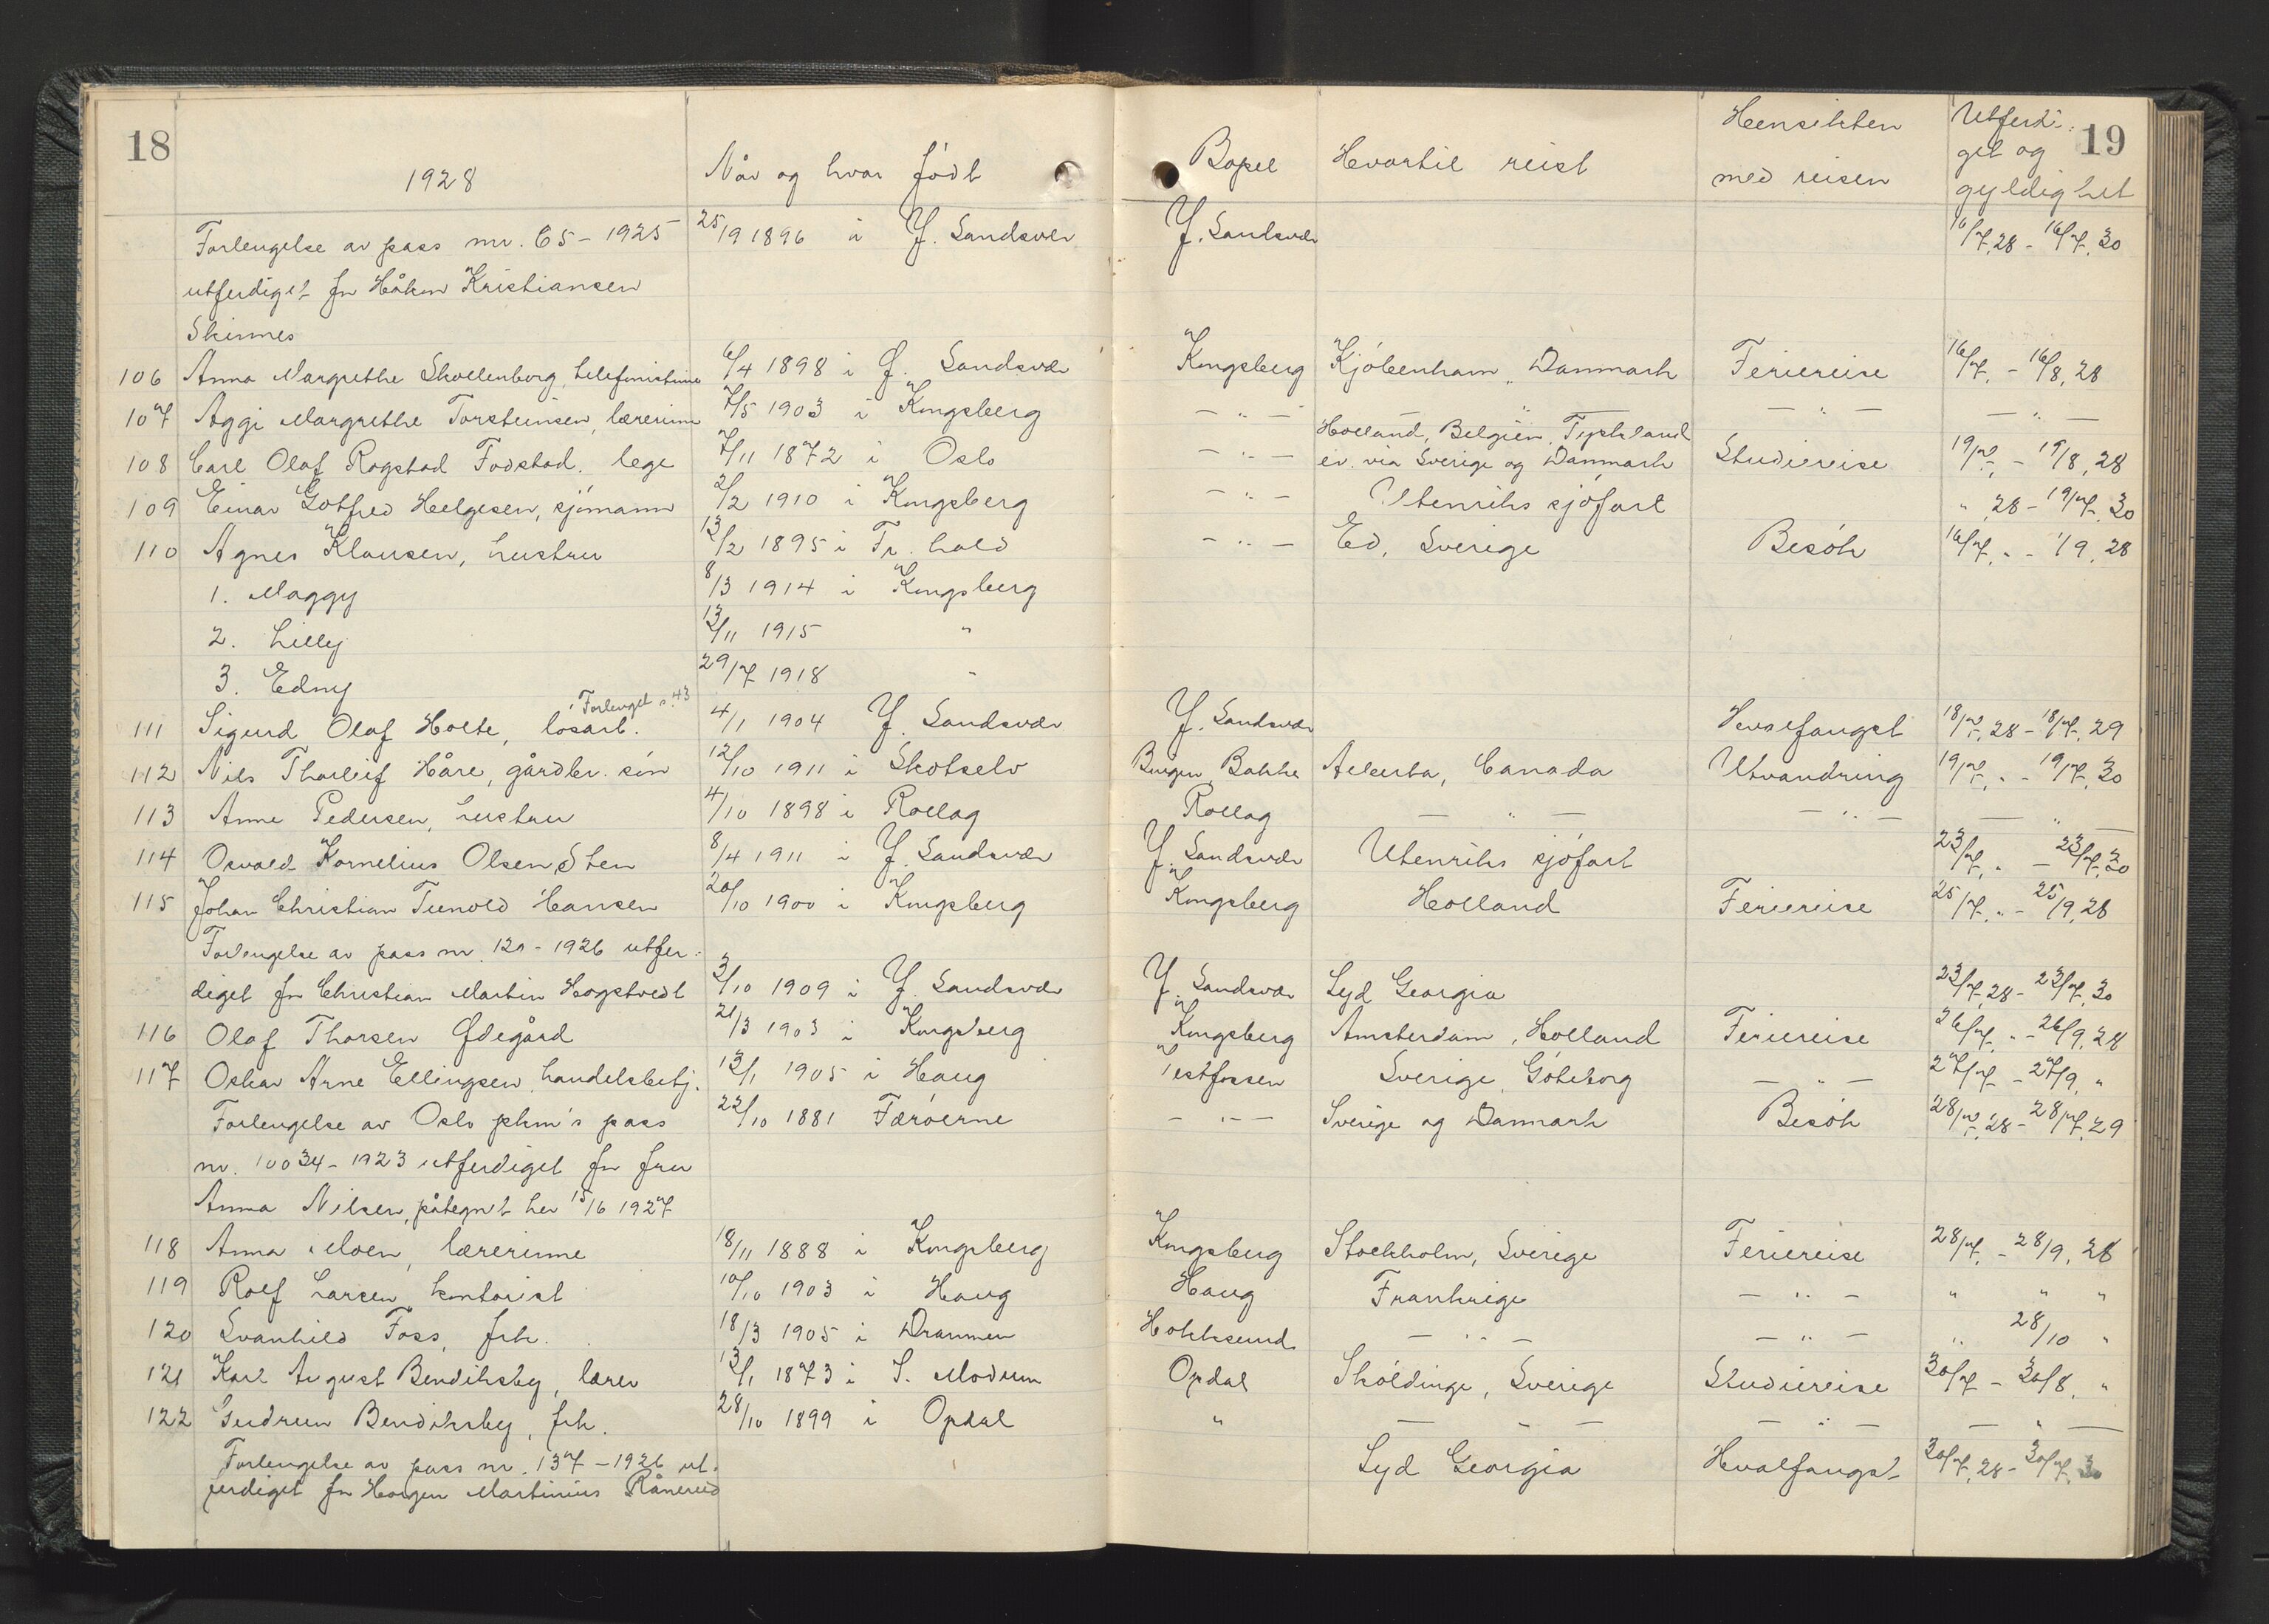 18
1928
Når og hvor født
Bopel
Hvortil reist
Hensikten
med reisen
Utferdi-
get og
gyldighet
19
Forlengelse av pass nr. 65 - 1925 25/9 1896 i Y. Sandsver Y. Sandsvær 16/7.28 - 16/7.30
utferdiget for Håkon Kristiansen
Skinnes
106 Anna Margrethe Skollenborg, telefonistinne 6/4 1898 i Y. Sandsvær Kongsberg Kjøbenhavn, Danmark Feriereise 16/7. - 16/8, 28
107 Aggi Margrethe Torsteinsen, lærerinne 7/5 1903 i Kongsberg - " - - " - - " - - " -
Holland, Belgien, Tyskland
108 Carl Olaf Rogstad Fodstad. lege 7/11 1872 i Oslo - " - ev. via Sverige og Danmark Studiereise 19/7. - 19/8, 28
109 Einar Gotfred Helgesen, sjømann 2/2 1910 i Kongsberg - " - Utenriks sjøfart " 28 - 19/7.30
110 Agnes Klausen, hustru 13/2 1895 i Fr. hald - " - Ed, Sverige Besøk 16/7. " - 1/9. 28
1. Maggy 8/3 1914 i Kongsberg
2. Lilly 13/11 1915 "
3. Edny 29/7 1918 "
Forlenget s. 43
111 Sigurd Olaf Holte, løsarb. 4/1 1904 Y. Sandsvær Y. Sandsvær Hvalfangst 18/7.28 - 18/7.29
112 Nils Thorleif Håre, gårdbr. søn 12/10 1911 i Skotselv Bingen, Bakke Alberta, Canada Utvandring 19/7. " - 19/7.30
113 Anne Pedersen, hustru 4/10 1898 i Rollag Rollag - " - - " - - " -
114 Osvald Kornelius Olsen Sten 8/4 1911 i Y. Sandsvær Y. Sandsvær Utenriks sjøfart 23/7. " - 23/7.30
115 Johan Christian Tenold Hansen 20/10 1900 i Kongsberg Kongsberg Holland Feriereise 25/7. " - 25/9, 28
Forlengelse av pass nr. 120 - 1926 utfer-
diget for Christian Martin Hogstvedt 3/10 1909 i Y. Sandsvær Y. Sandsvær Syd Georgia 23/7.28 - 23/7.30
116 Olaf Thorsen Ødegård 21/3 1903 i Kongsberg Kongsberg Amsterdam, Holland Feriereise 26/7. " - 26/9.28
117 Oskar Arne Ellingsen, handelsbetj. 13/1 1905 i Haug Vestfossen Sverige, Göteborg - " - 27/7 - 27/9. "
Forlengelse av Oslo pkm's pass 22/10 1881 Færøerne - " - Sverige og Danmark Besøk 28/7.28 - 28/7.29
nr. 10034 - 1923 utferdiget for fru
Anna Nilsen, påtegnet her 15/6 1927
118 Anna Moen, lærerinne 18/11 1888 i Kongsberg Kongsberg Stockholm, Sverige Feriereise 28/7. - 28/9, 28
119 Rolf Larsen, kontorist 10/10 1903 i Haug Haug Frankrige - " - " " "
120 Svanhild Foss, frk. 18/3 1905 i Drammen Hokksund - " - - " - " 28/10 "
121 Karl August Bendiksby, lærer 13/1 1873 i S. Modum Opdal Sköldinge, Sverige Studiereise 30/7 - 30/8. "
122 Gudrun Bendiksby, frk. 28/10 1899 i Opdal " - " - - " - - " -
Forlengelse av pass nr. 137 - 1926 ut- Syd Georgia Hvalfangst 30/7.28 - 30/7.30
ferdiget for Horgen Martinius Rånerud